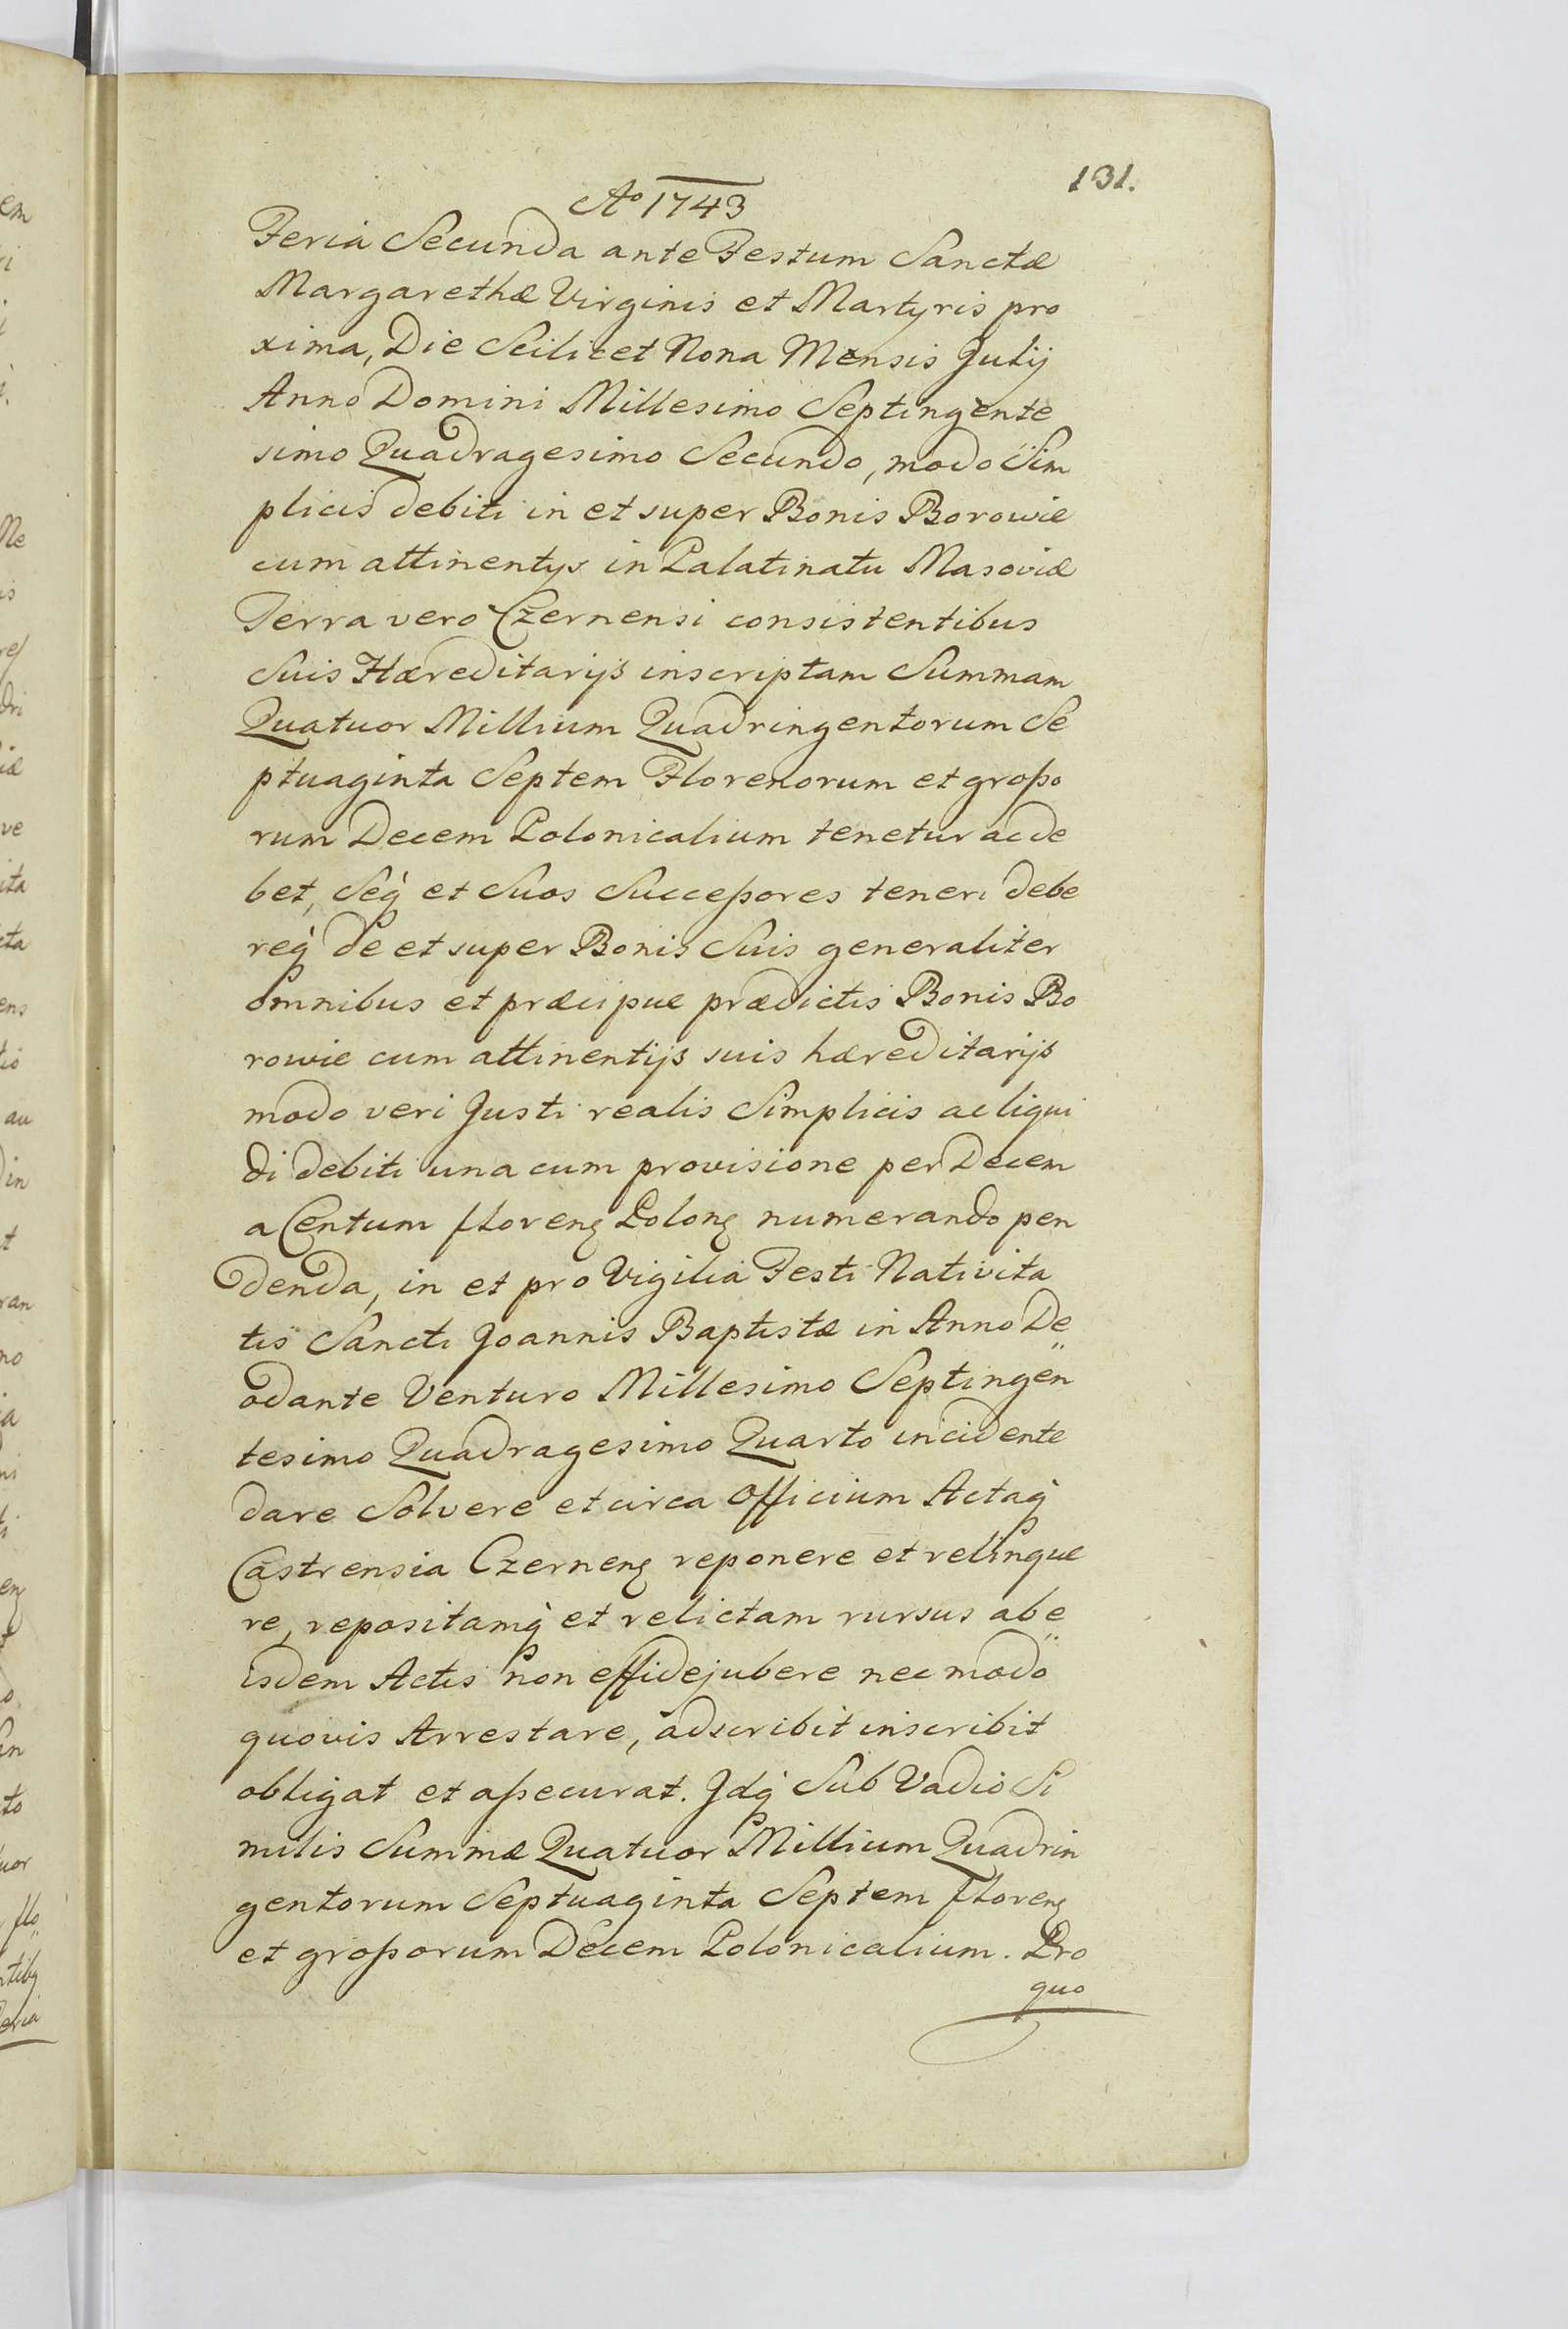 131.
Ao 1743
Feria Secunda ante Festum Sanctæ
Margarethæ Virginis et Martyris pro
xima, Die Scilicet Nona Mensis Julij
Anno Domini Millesimo Septingente
simo Quadragesimo Secundo, modo Sim
plicis debiti in et super Bonis Borowie
cum attinentys in Palatinatu Masoviæ
Terra vero Czernensi consistentibus
Suis Hæreditarijs inscriptam Summam
Quatuor Millium Quadringentorum Se
ptuaginta Septem Florenorum et großo
rum Decem Polonicalium tenetur ac de
bet, Seq̀ et Suos Succeßores teneri debe
req̀ de et super Bonis Suis generaliter
omnibus et præcipue prædictis Bonis Bo
rowie cum attinentijs suis hæreditarijs
modo veri Justi realis Simplicis ac liqui
di debiti una cum provisione per Decem
a Centum florenꝫ Polonꝫ numerando pen
denda, in et pro Vigilia Festi Nativita
tis Sancti Joannis Baptistæ in Anno De„
odante Venturo Millesimo Septingen
tesimo Quadragesimo Quarto incidente
dare Solvere et circa Officium Actaq̀
Castrensia Czernenꝫ reponere et relinque
re, repositamq̀ et relictam rursus ab e„
isdem Actis non effidejubere nec modo
quovis Arrestare, adscribit inscribit
obligat et aßecurat. Jdq̀ Sub Vadio Si
milis Summæ Quatuor Millium Quadrin
gentorum Septuaginta Septem florenꝫ
et großorum Decem Polonicalium. Pro
quo